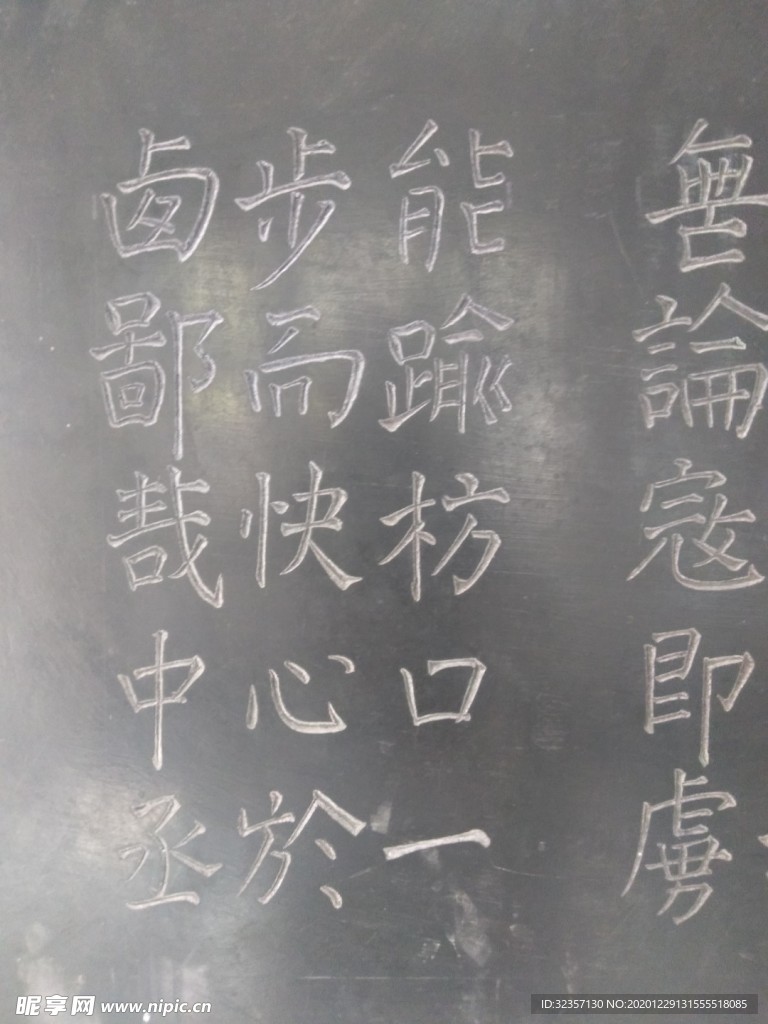 無論寇即虜
能踰枋口一
步而快心於
卤鄙哉中丞
昵享网 www.nipic.cn
ID:32357130 NO:20201229131555518085